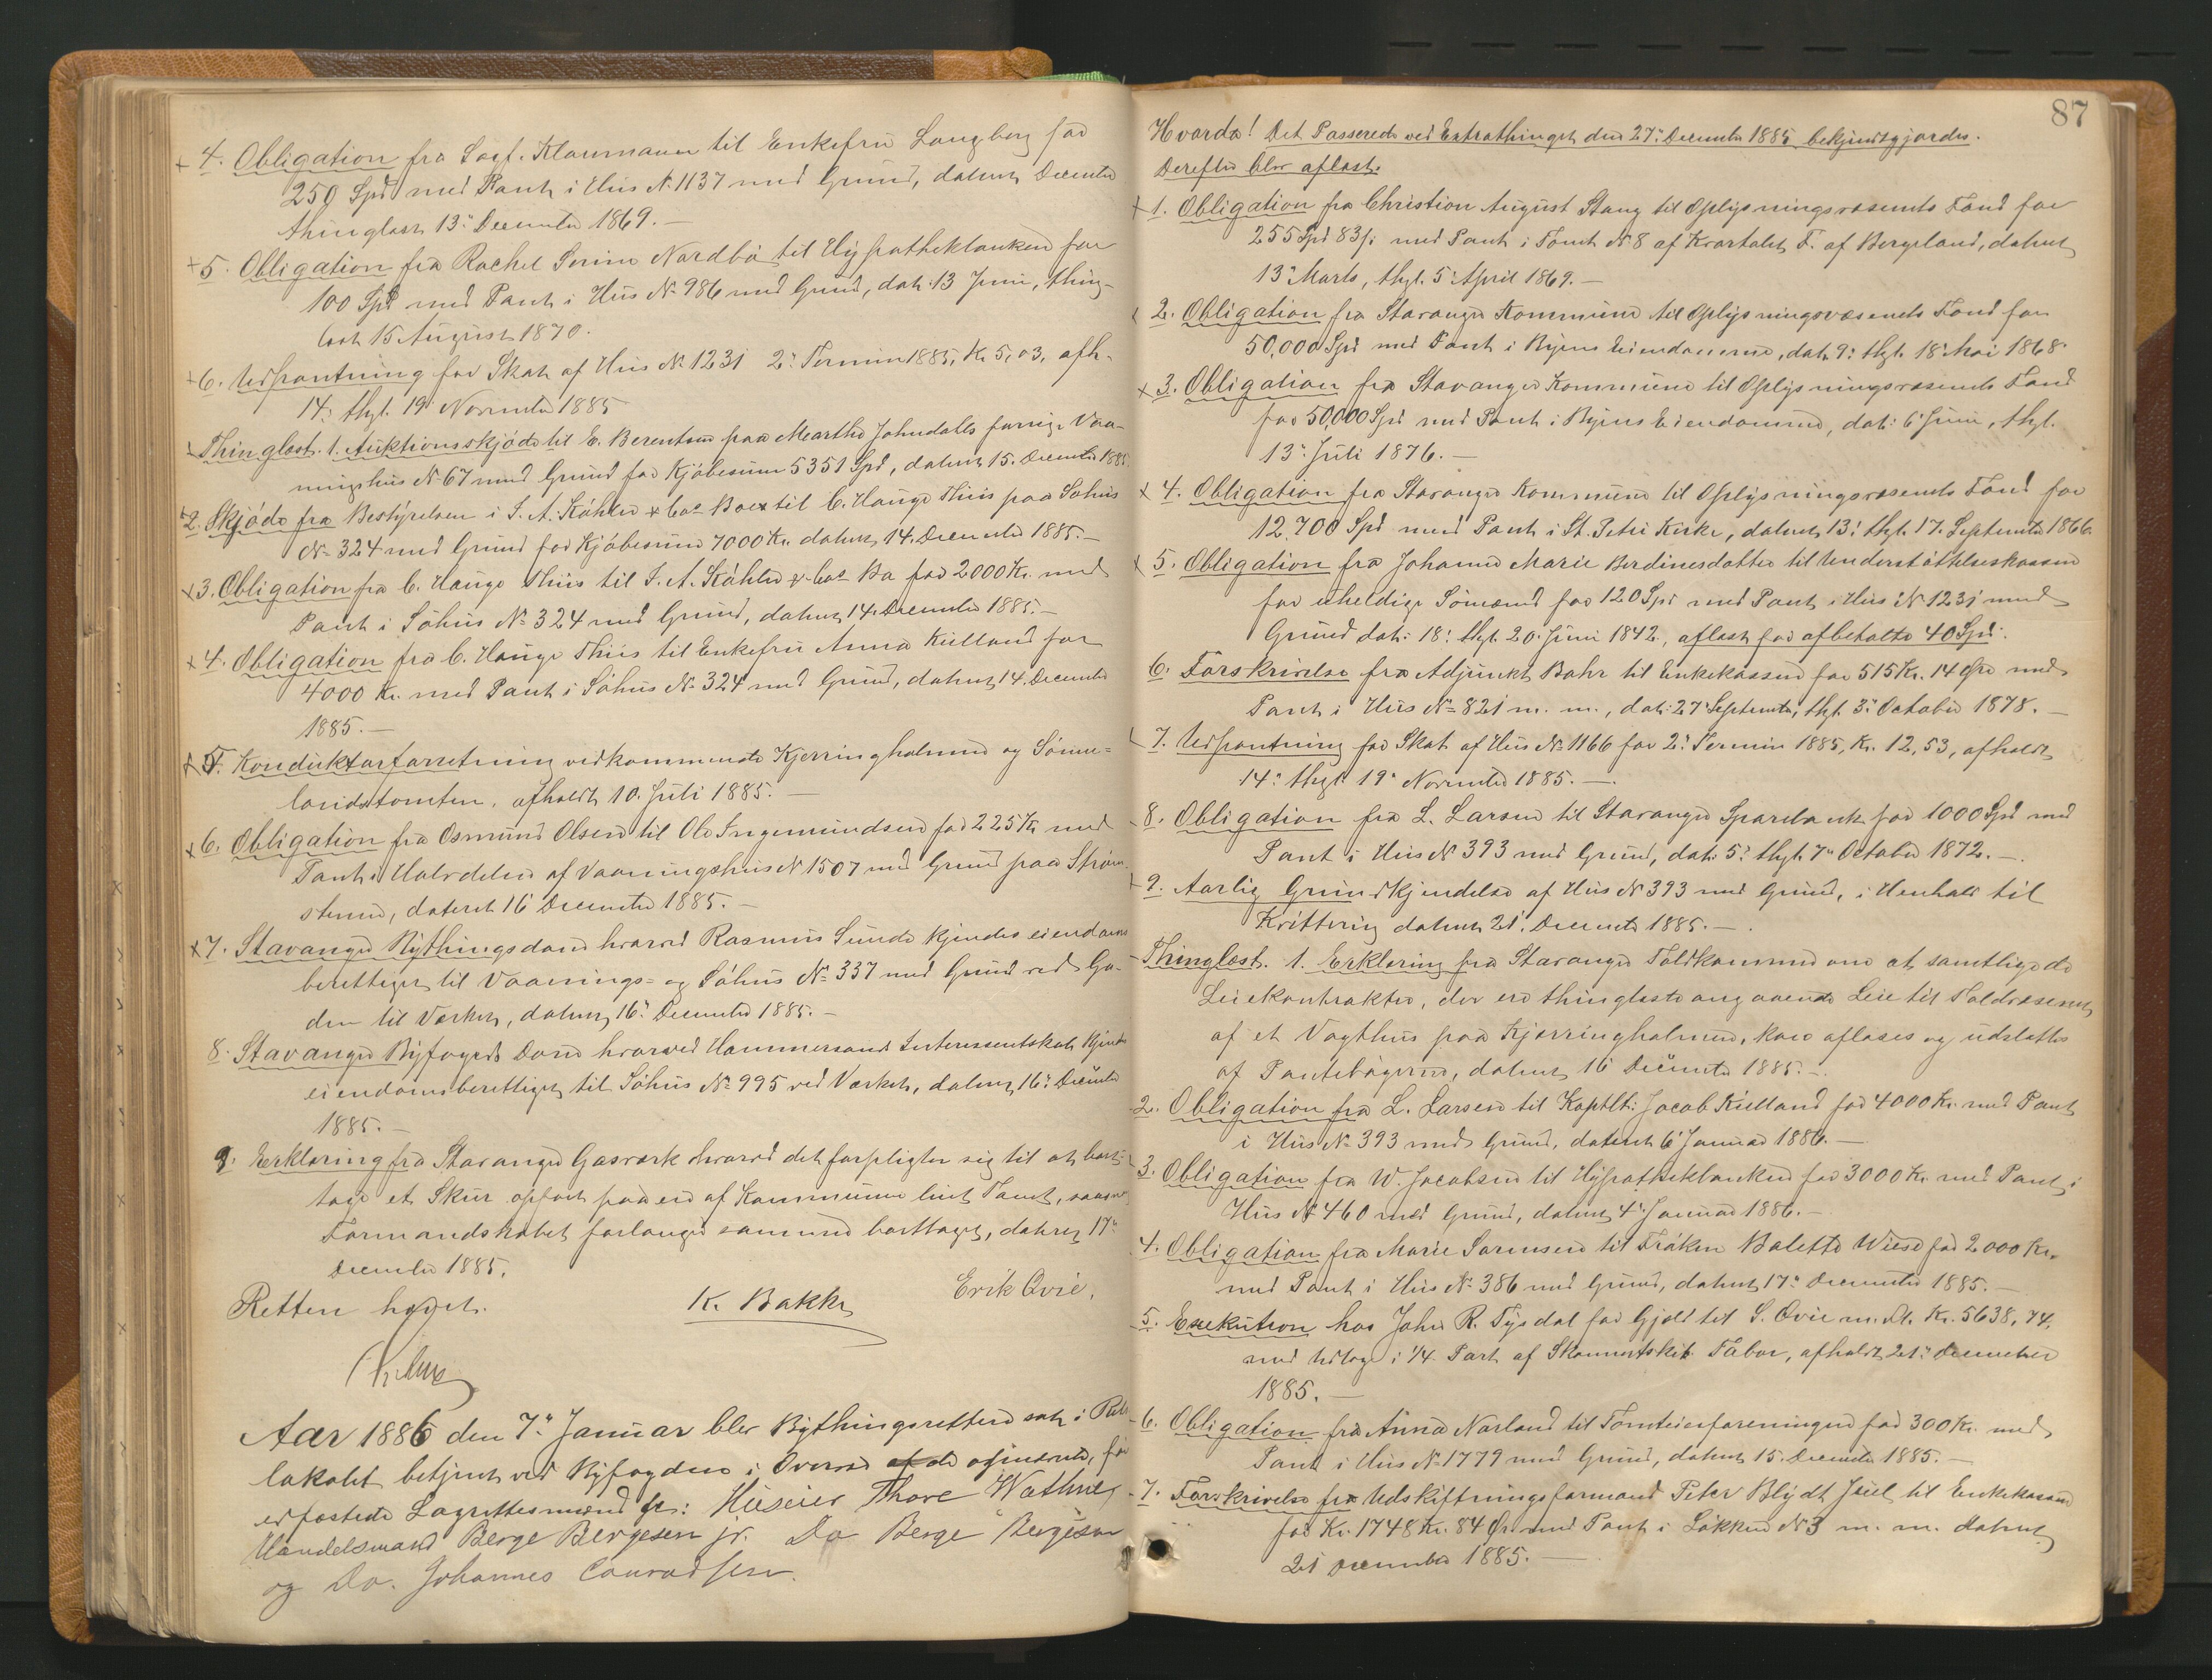 4. Obligation fra Sagf. Klaumann til Enkefru Langberg for
250 Spd med Pant i Hus N. 1137 med Grund, dateret December
thinglæst 13de December 1869.-
5. Obligation fra Rachel Serine Nordbö til Hypothekbanken for
100 Spd med Pant i Hus N. 986 med Grund, dat. 13 Juni, thing-
læst 15 August 1870.
6. Udpantning for Skat af Huus No 1231 2. Termin 1885, K. 5,03, afh.
14. thgl. 19. November 1885
Thinglæst. 1. Auktionsskjöde til E. Berentsen paa Marthe Johndatters forrige Vaa-
ningshus No 67 med Grund for Kjöbesum 5351 Spd, dateret 15. December 1885
2. Skjöde fra Bestyrelsen i S. A. Köhler & Cos Bo til C. Hauge Thiis paa Söhus
No 324 med Grund for Kjöbesum 7000 Kr. dateret 14. December 1885.-
3. Obligation fra C. Hauge Thiis til S. A. Köhler & Cos Bo for 2000 Kr. med
Pant i Söhus No 324 med Grund, dateret 14. December 1885.-
4. Obligation fra C. Hauge Thiis til Enkefru Anna Kielland for
4000 Kr. med Pant i Söhus No 324 med Grund, dateret 14. December
1885.-
5. Konduktørforretning vedkommende Kjerringholmen og Sömme-
landstomten, afholdt 10. Juli 1885.-
6. Obligation fra Osmund Olsen til Ole Ingemundsen for 225 Kr med
Pant i Halvdelen af Vaaningshus No 1507 med Grund paa Ström-
stenen, dateret 16 December 1885.-
7. Stavanger Bythingsdom hvorved Rasmus Sunde kjendes eiendoms
berettiget til Vaanings- og Söhus No 337 med Grund ved Ga-
den til Verket, dateret 16. December 1885.-
8. Stavanger Byfogeds Dom hvorved Hammersands Interessentskab kjendes
eiendomsberettiget til Söhus No 995 ved Verket, dateret 16. December
1885.-
9. Erklæring fra Stavanger Gasværk hvorved det forpligter sig til at bort-
tage et Skur opfört paa en af Kommunen leiet Tomt, saasnart
Formandskabet forlanger samme borttaget, dateret 17.
December 1885.
Retten hævet.
K. Bakke
Erik Qvie,
Aar 1886 den 7. Januar blev Bythingsretten sat i Rets
lokalet betjent ved Byfogden i Overvær af de opnævnte, før
edfæstede Lagrettesmænd fr: Huseier Thore Wathne,
Handelsmand Berge Bergesen jr. Do Berge Bergesen
og Do. Johannes Conradsen.
87
Hvorda! Det Passerede ved Extrathinget den 27. December 1885 bekjendtgjordes.
Derefter blev aflæst.
1. Obligation fra Christian August Stang til Oplysningsvæsenets Fond for
255 Spd 83 s. med Pant i Tomt No 8 af Kvartalet F. af Bergeland, dateret
13. Marts, thgl. 5 April 1869.-
2. Obligation fra Stavanger Kommune til Oplysningsvæsenets Fond for
50,000 Spd med Pant i Byens Eiendomme, dat. 9. thgl. 18. Mai 1868.
3. Obligation fra Stavanger Kommune til Oplysningsvæsenets Fond
for 50,000 Spd med Pant i Byens Eiendomme, dat. 6 Juni, thgl.
13. Juli 1876.-
4. Obligation fra Stavanger Kommune til Oplysningsvæsenets Fond for
12,700 Spd med Pant i St. Petri Kirke, dateret 13. thgl. 17. September 1866.
5. Obligation fra Johanne Marie Berdinesdatter til Understöttelseskassen
for uheldige Sömænd for 120 Spd med Pant i Hus No 1231 med
Grund dat. 18. thgl. 20. Juni 1842, aflæst for afbetalte 40 Spd.
6. Forskrivelse fra Adjunkt Bahr til Enkekassen for 515 Kr. 14 Öre med
Pant i Hus No 821 m. m., dat. 27. September, thgl. 3. October 1878.-
7. Udpantning for Skat af Hus No 1166 for 2. Termin 1885, Kr. 12,53, afholdt
14. thgl. 19. November 1885.-
8. Obligation fra L. Larsen til Stavanger Sparebank for 1000 Spd med
Pant i Hus No 393 med Grund, dat. 5. thgl. 7. October 1872.-
9. Aarlig Grundkjendelse af Hus No 393 med Grund, i Henhold til
Kvittering dateret 21. December 1885.-
Thinglæst. 1. Erklæring fra Stavanger Toldkammer om at samtlige de
Leiekontrakter, der ere thinglæste angaaende Leie til Toldvæsenet
af et Vagthus paa Kjærringholmen, kan aflæses og udslettes
af Pantebögerne, dateret 16 December 1885.-
2. Obligation fra L. Larsen til Kaptlt. Jacob Kielland for 4000 Kr. med Pant
i Hus No 393 med Grund, dateret 6 Januar 1886.-
3. Obligation fra W. Jacobsen til Hypothekbanken for 3000 Kr. med Pant i
Hus No 460 med Grund, dateret 4. Januar 1886.-
4. Obligation fra Marie Sørensen til Fröken Bolette Wiese for 2000 Kr.
med Pant i Hus No 386 med Grund, dateret 17. December 1885.-
5. Exekution hos John R. Tysdal for Gjæld til S. Qvie m. fl. Kr. 5638,74,
med Udlæg i 1/4 Part af Skonnertskib Tabor, afholdt 21. December
1885.-
6. Obligation fra Anna Narland til Tomteierforeningen for 300 Kr. med
Pant i Hus No 1779 med Grund, dateret 15. December 1885.-
7. Forskrivelse fra Udskiftningsformand Peter Blydt Juel til Enkekassen
for Kr. 1748 Kr. 84 Ør. med Pant i Lökken No 3 m. m. dateret
21 December 1885.-